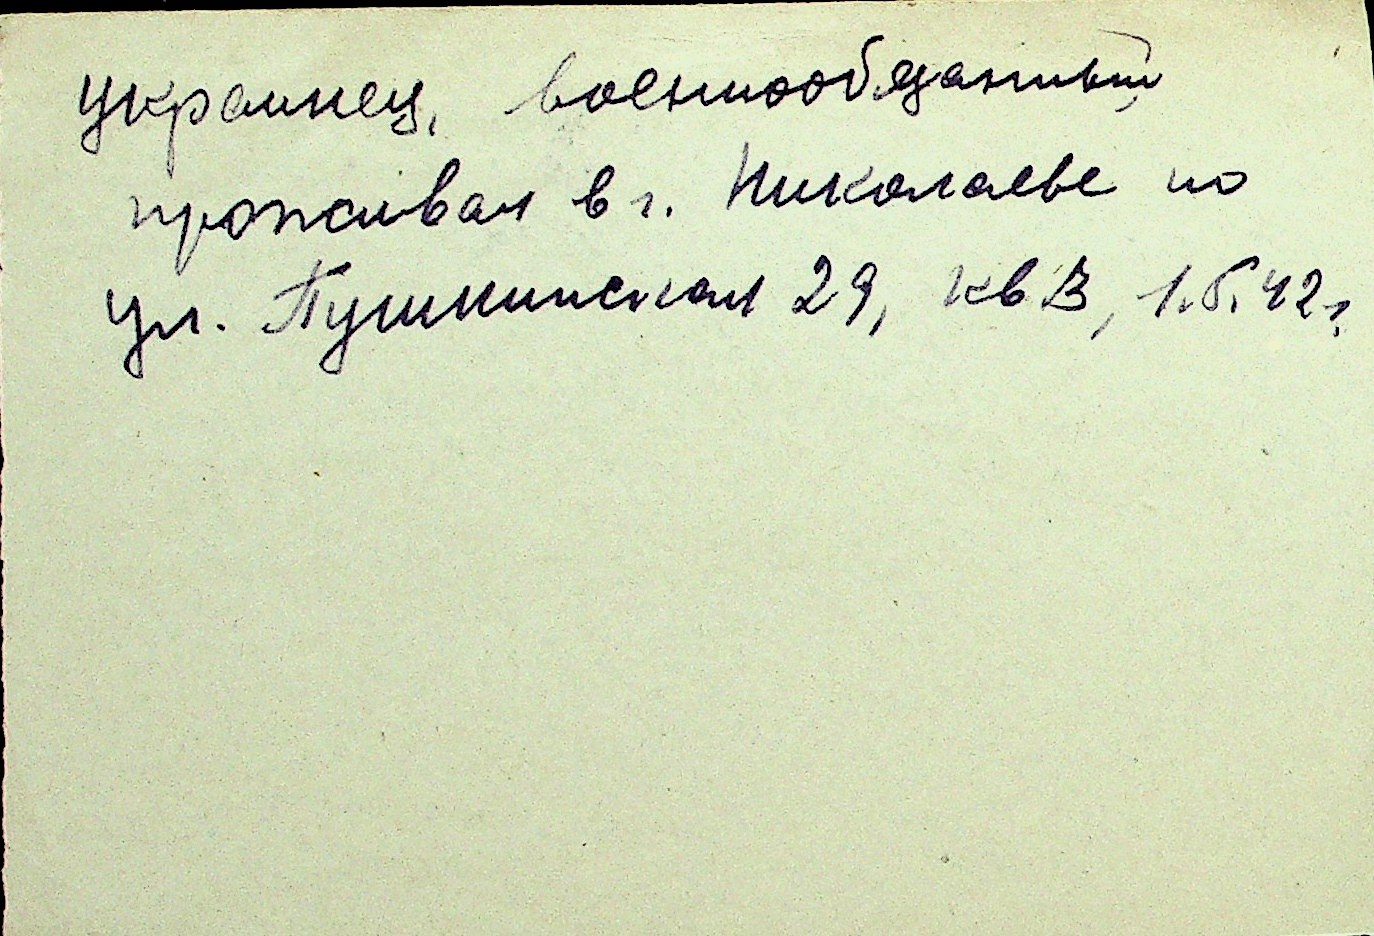 украинец, военнообязанный
проживал в г. Николаеве по
ул. Пушкинская 29, кв 3, 1.6.42 г.